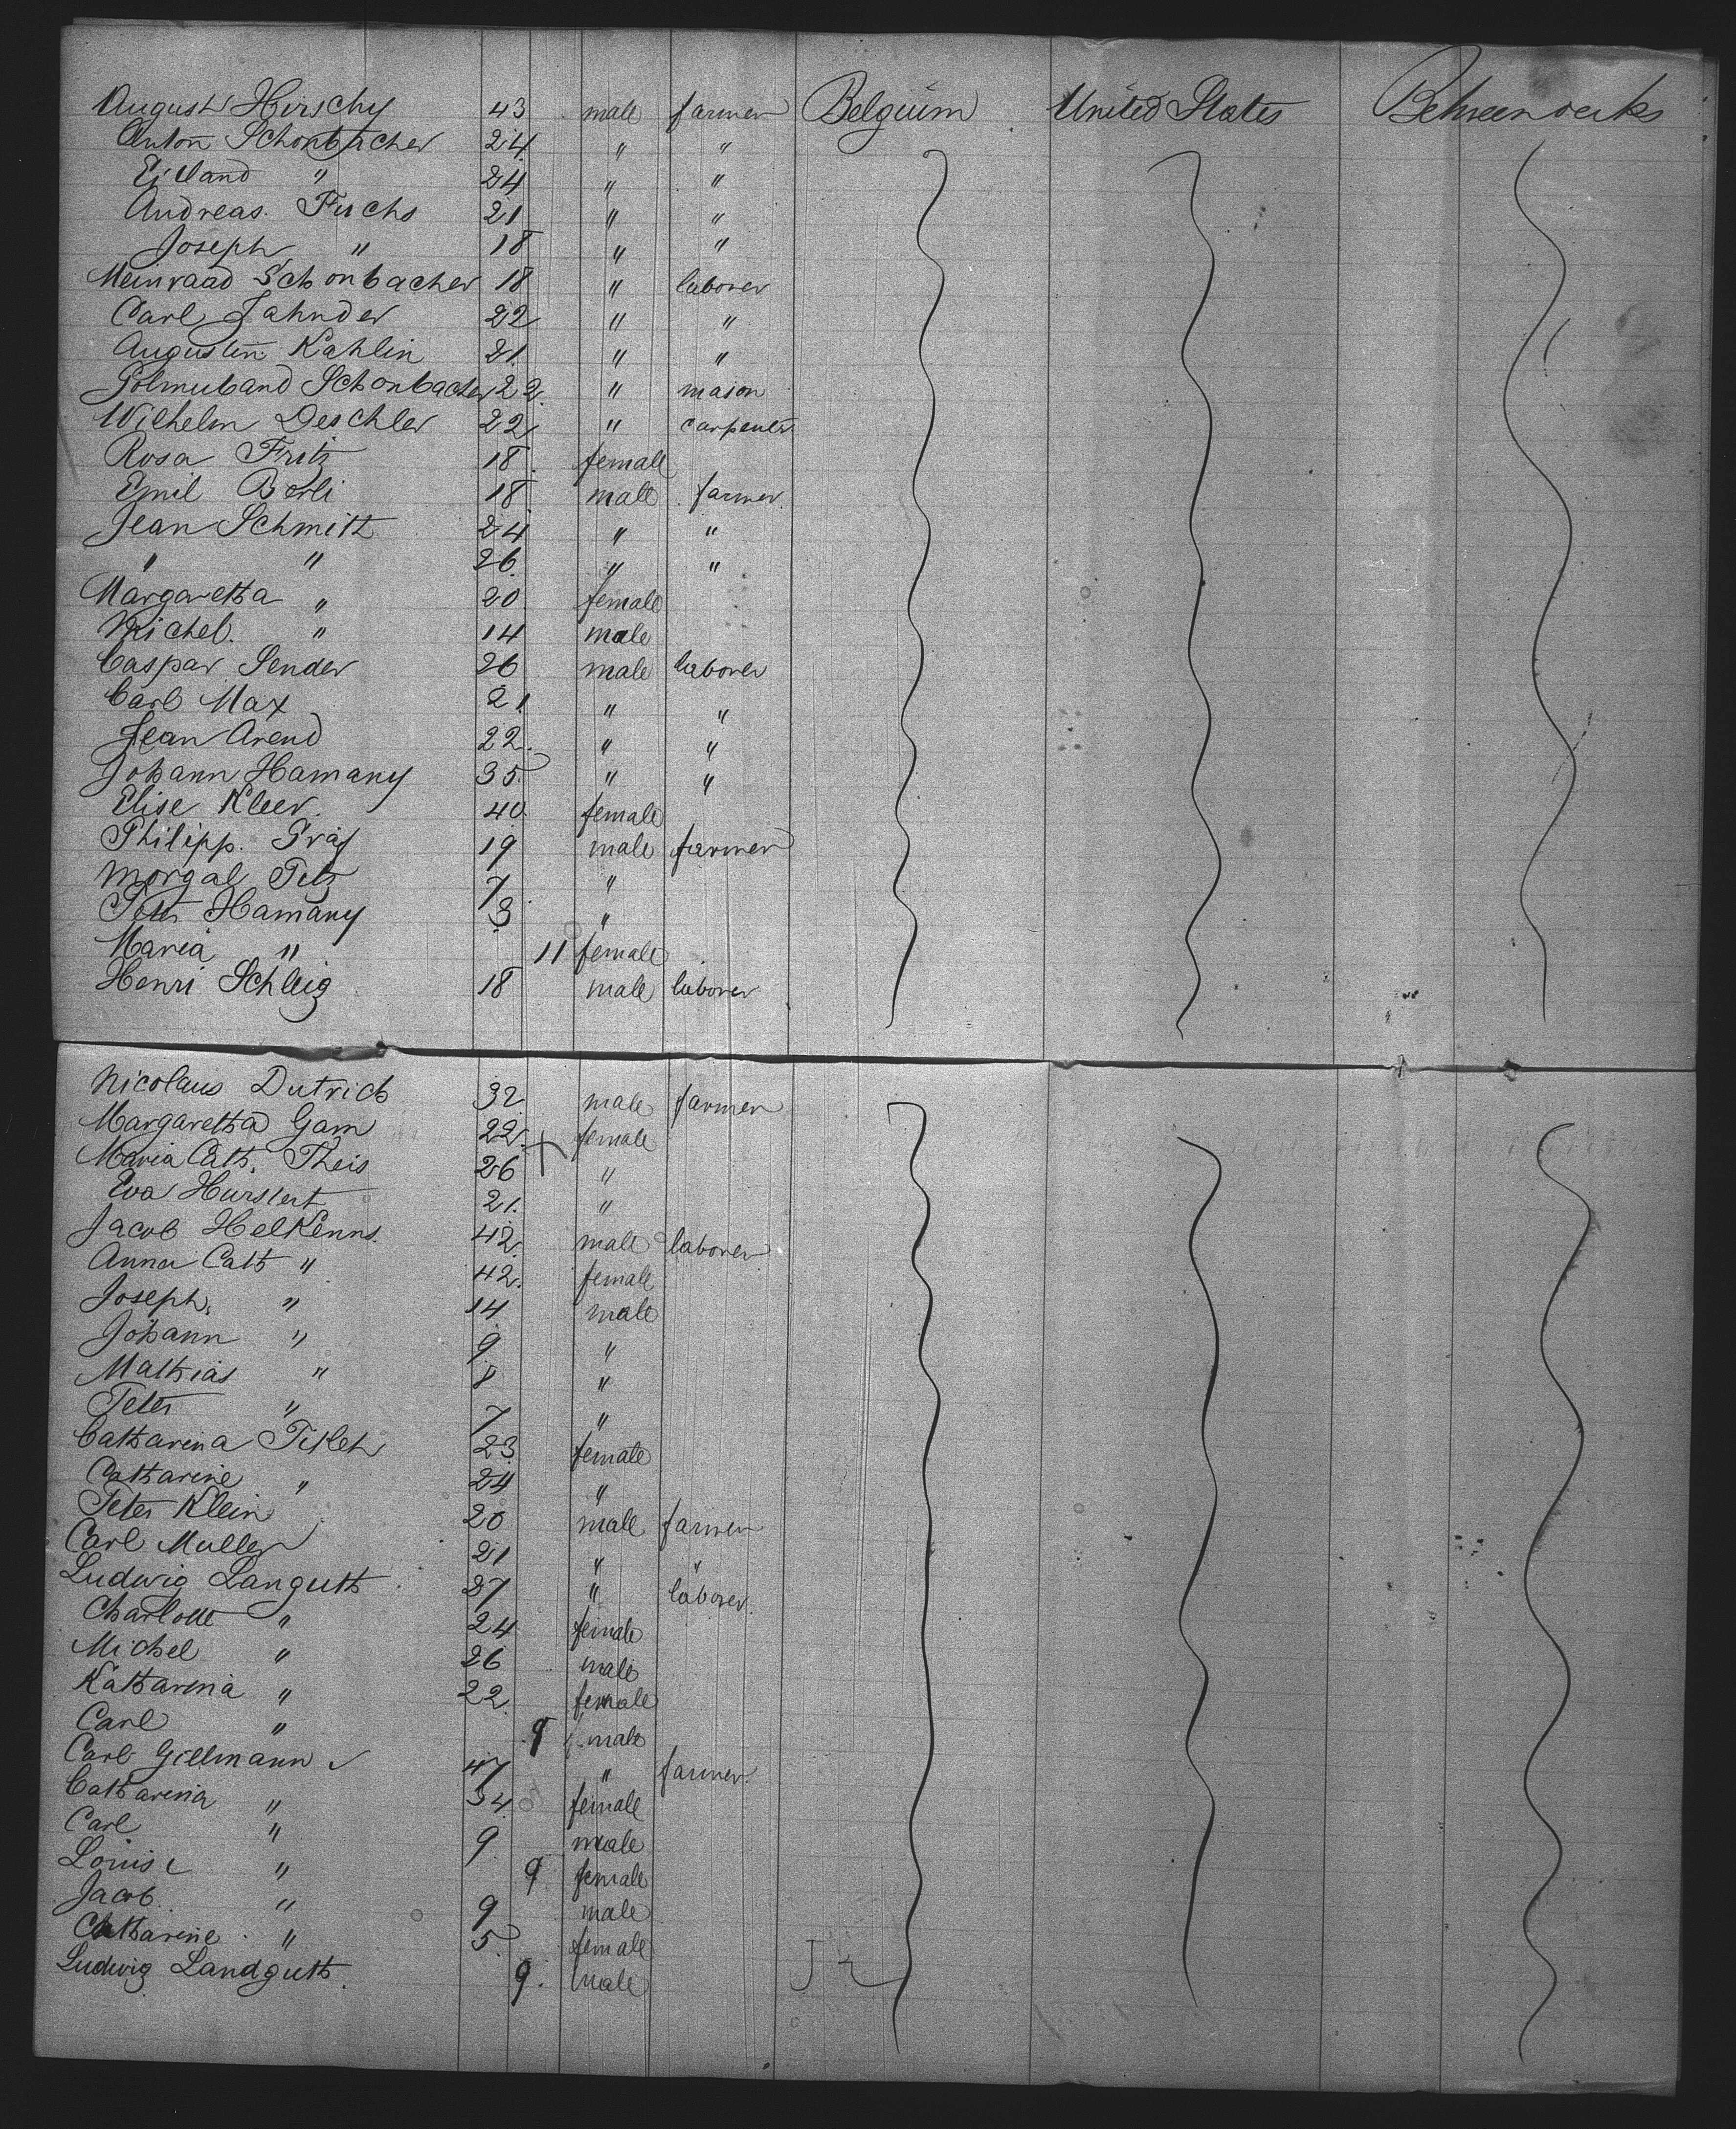 August Hirschy 43 male farmer Belgium United States Between decks
Anton Schonbacher 24 " "
" 24 " "
Andreas Fuchs 21 " "
Joseph " 18 " "
Meinraad Schonbacher 18 " laborer
Carl Zahnder 22 " "
Augustin Kahlin 21 " "
Schonbacher 22 " mason
Wilhelm Deschler 22 " carpenter
Rosa Fritz 18 female
Emil Berli 18 male farmer
Jean Schmitt 24 " "
" " 26 " "
Margaretha " 20 female
Michel " 14 male
Caspar Sender 26 male laborer
Carl Max 21 " "
Jean Arend 22 " "
Johann Hamany 35 " "
Elise Kleer 40 female
Philipp Gräf 19 male farmer
Morgal 7 "
Peter Hamany 3 "
Maria " 11 female
Henri Schleig 18 male laborer
Nicolaus Dutrich 32 male farmer
Margaretha Gam 22 female
Maria Cath. Theis 26 "
Eva 21 "
Jacob HelKenns 42 male laborer
Anna Cath " 42 female
Joseph " 14 male
Johann " 9 "
Mathias " 8 "
Peter " 7 "
Catharina 23 female
Catharine " 24 "
Peter Klein 20 male farmer
Carl Muller 21 " "
Ludwig Languth 27 " laborer
Charlotte " 24 female
Michel " 26 male
Katharina " 22 female
Carl " 9 male
Carl Gillmann 47 " farmer
Catharina " 34 female
Carl " 9 male
Louise " 9 female
Jacob " 9 male
Catharine " 5 female
Ludwig Landguth 9 male